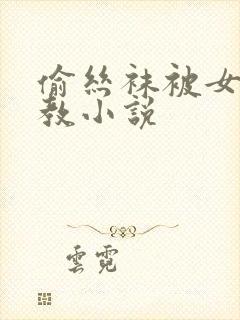 偷丝袜被女
教小説
雲霓